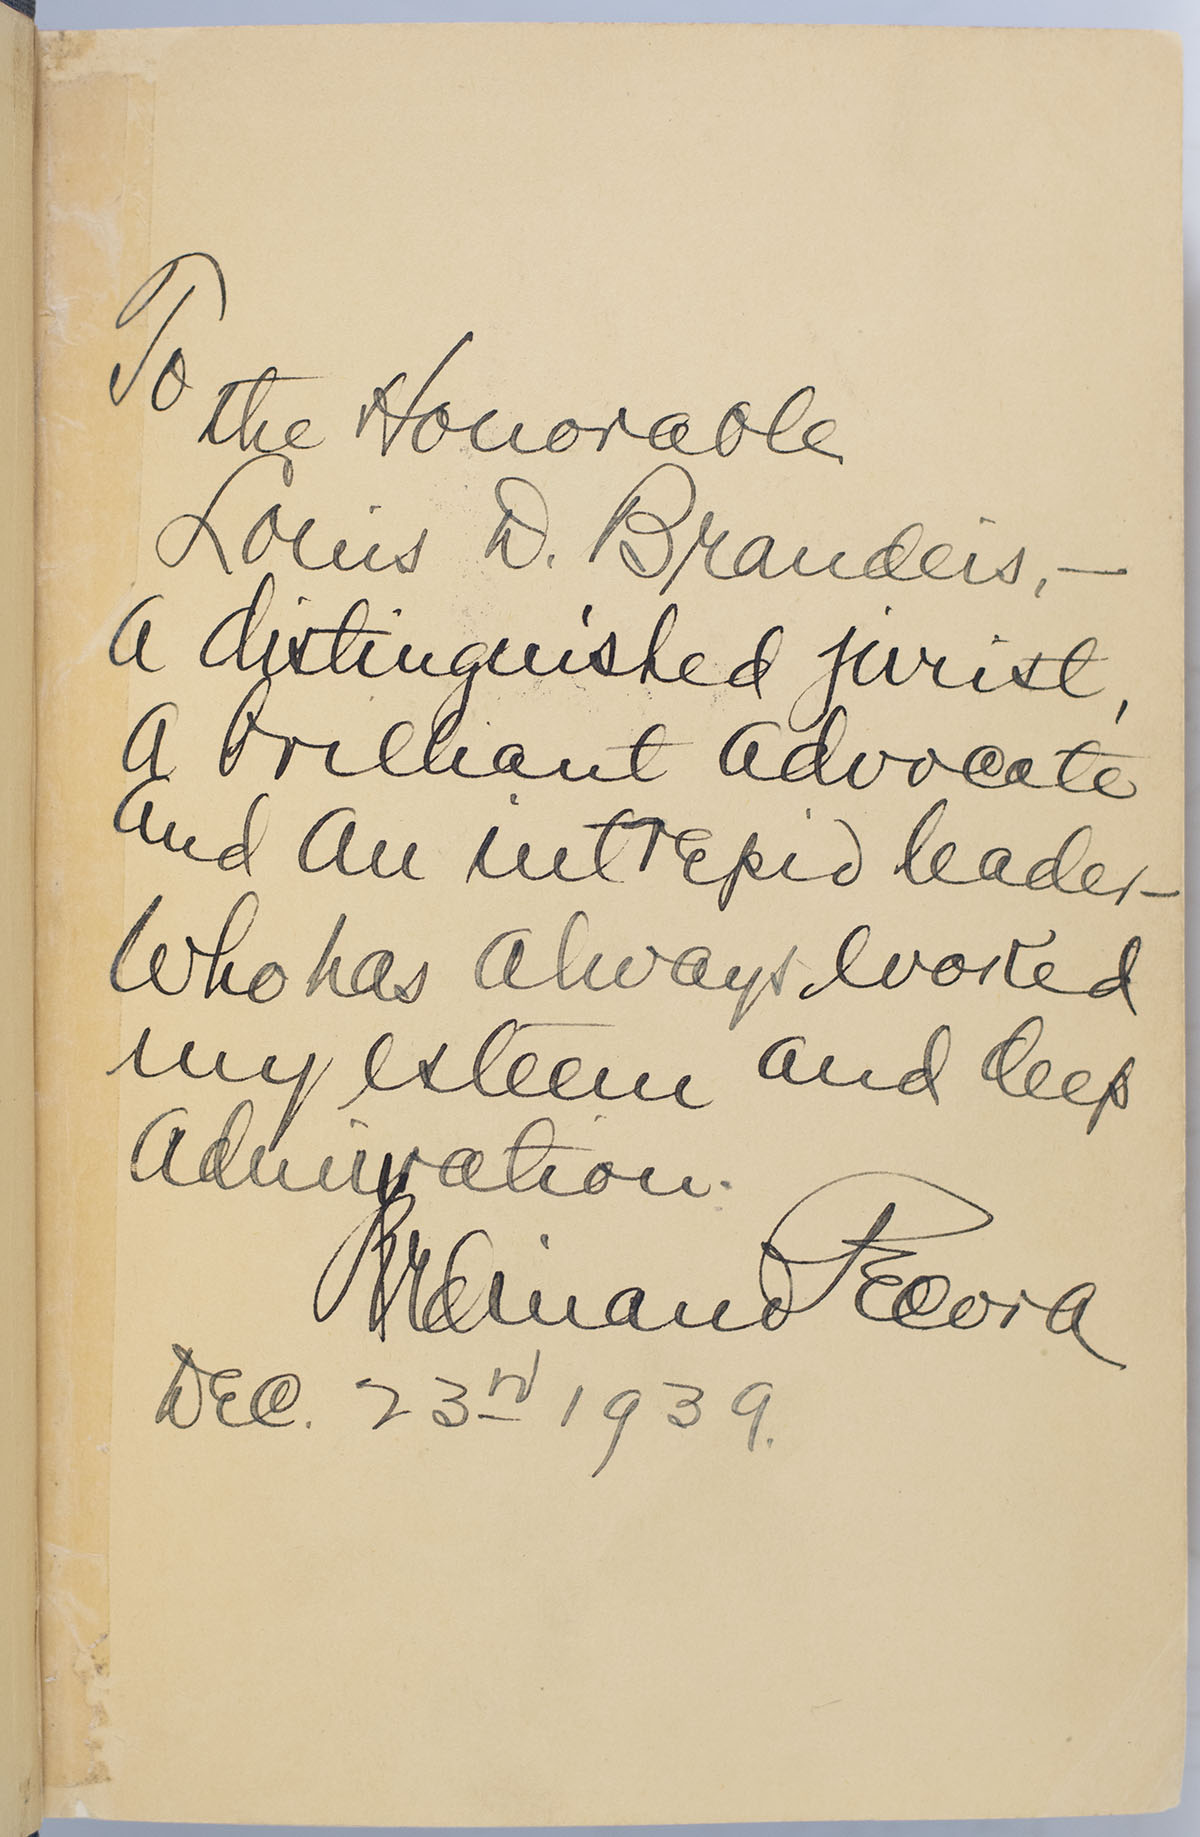 To
the Honorable
Louis D. Brandeis, —
a distinguished jurist,
a brilliant advocate
and an intrepid leader —
who has always evoked
my esteem and deep
admiration.
Ferdinand Pecora
Dec. 23rd 1939.